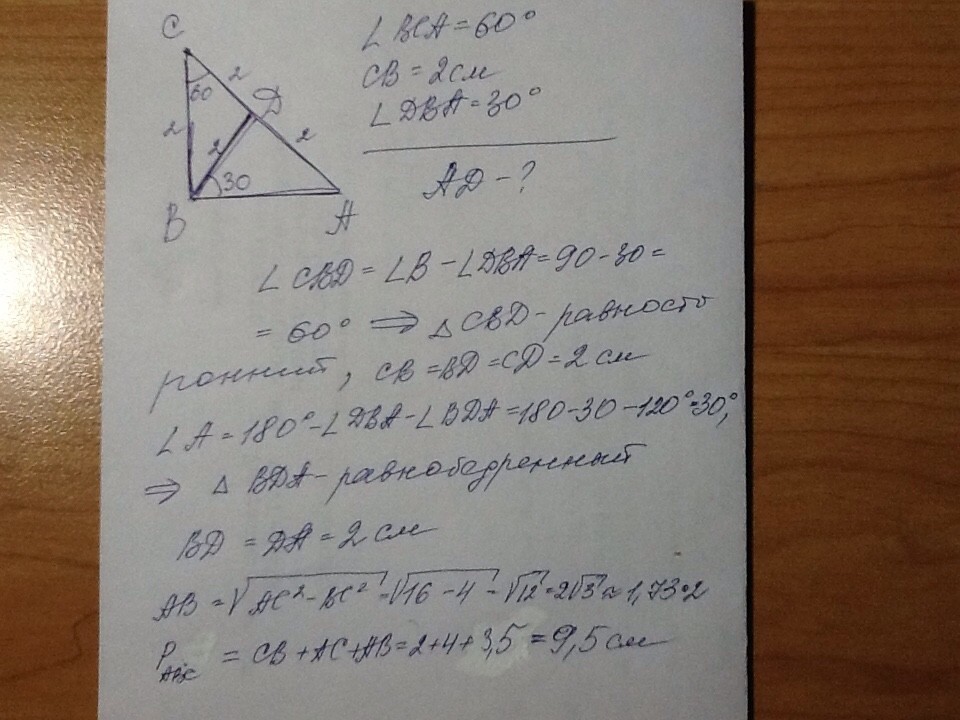 C
∠BCA = 60°
CB = 2 см
∠DBA = 30°
AD - ?
60
2
D
2
2
2
30
B
A
∠CBD = ∠B - ∠DBA = 90 - 30 =
= 60° ⟹ △ CBD - равносто
ронний, CB = BD = CD = 2 см
∠A = 180° - ∠DBA - ∠BDA = 180 - 30 - 120° = 30°,
⟹ △ BDA - равнобедренный
BD = DA = 2 см
AB = √AC² - BC² = √16 - 4 = √12 = 2√3 ≈ 1,73·2
P ABC = CB + AC + AB = 2 + 4 + 3,5 = 9,5 см